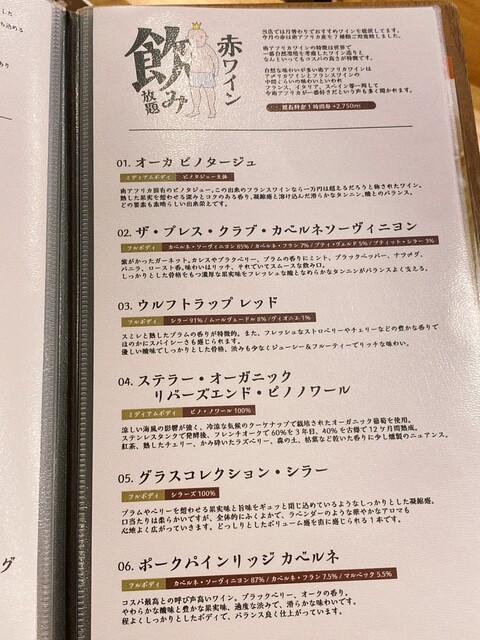 飲み
放題
赤ワイン
当店では月替わりでおすすめワインを厳選してます。
今月の赤は南アフリカ産を7種類ご用意致しました。
南アフリカワインの特徴は世界で
一番自然環境を考慮したワイン造りと
なんといってもコスパの高さが特徴です。
自然な味わいが多い南アフリカワインは
アメリカワインとフランスワインの
中間くらいの味わいといわれ
フランス、イタリア、スペイン等一周して
今南アフリカが一番好きだという声も多く聞かれます。
1時間毎 +2,750ml
01. オーカ ピノタージュ
ミディアムボディ ピノタージュ主体
南アフリカ固有のピノタジュー。この出来のフランスワインなら一万円は超えるだろうと称されたワイン。
熟した果実を想わせる深みとコクのある香り、凝縮感と溶け込んだ滑らかなタンニン、酸とのバランス。
どの要素も素晴らしい出来栄えです。
02. ザ・プレス・クラブ・カベルネソーヴィニヨン
フルボディ カベルネ・ソーヴィニヨン 85% / カベルネ・フラン 7% / プティ・ヴェルド 5% / プティット・シラー 3%
紫がかったガーネット。カシスやブラックベリー、プラムの香りにミント、ブラックペッパー、ナツメグ、
バニラ、ロースト香。味わいはリッチ、それでいてスムースな飲み口。
しっかりとした骨格をもつ濃厚な果実味をフレッシュな酸となめらかなタンニンがバランスよく支える。
03. ウルフトラップ レッド
フルボディ シラー 91% / ムールヴェードル 8% / ヴィオニエ 1%
スミレと熟したプラムの香りが特徴的。また、フレッシュなストロベリーやチェリーなどの豊かな香りで
ほのかにスパイシーさも感じられます。
優しい酸味でしっかりとした骨格、渋みも少なくジューシー＆フルーティーでリッチな味わい。
04. ステラー・オーガニック
リバーズエンド・ピノノワール
ミディアムボディ ピノ・ノワール 100%
涼しい海風の影響が強く、冷涼な気候のクーケナップで栽培されたオーガニック葡萄を使用。
ステンレスタンクで発酵後、フレンチオークで60%を3年目、40%を古樽で12ヶ月間熟成。
紅茶、熟したチェリー、かみ砕いたラズベリー、森の土、枯葉など乾いた香りに少し燻製のニュアンス。
05. グラスコレクション・シラー
フルボディ シラーズ 100%
プラムやベリーを想わせる果実味と旨味をギュッと閉じ込めているようなしっかりとした凝縮感。
口当たりは柔らかいですが、全体的にふくよかで、ラベンダーのような華やかなアロマも
心地よく広がっていきます。どっしりとしたボリューム感を直に感じられる1本です。
06. ポークパインリッジ カベルネ
フルボディ カベルネ・ソーヴィニヨン 87% / カベルネ・フラン 7.5% / マルベック 5.5%
コスパ最高との呼び声高いワイン。ブラックベリー、オークの香り。
やわらかな酸味と豊かな果実味、適度な渋みで、滑らかな味わいです。
程よくしっかりとしたボディで、バランス良く仕上がっています。